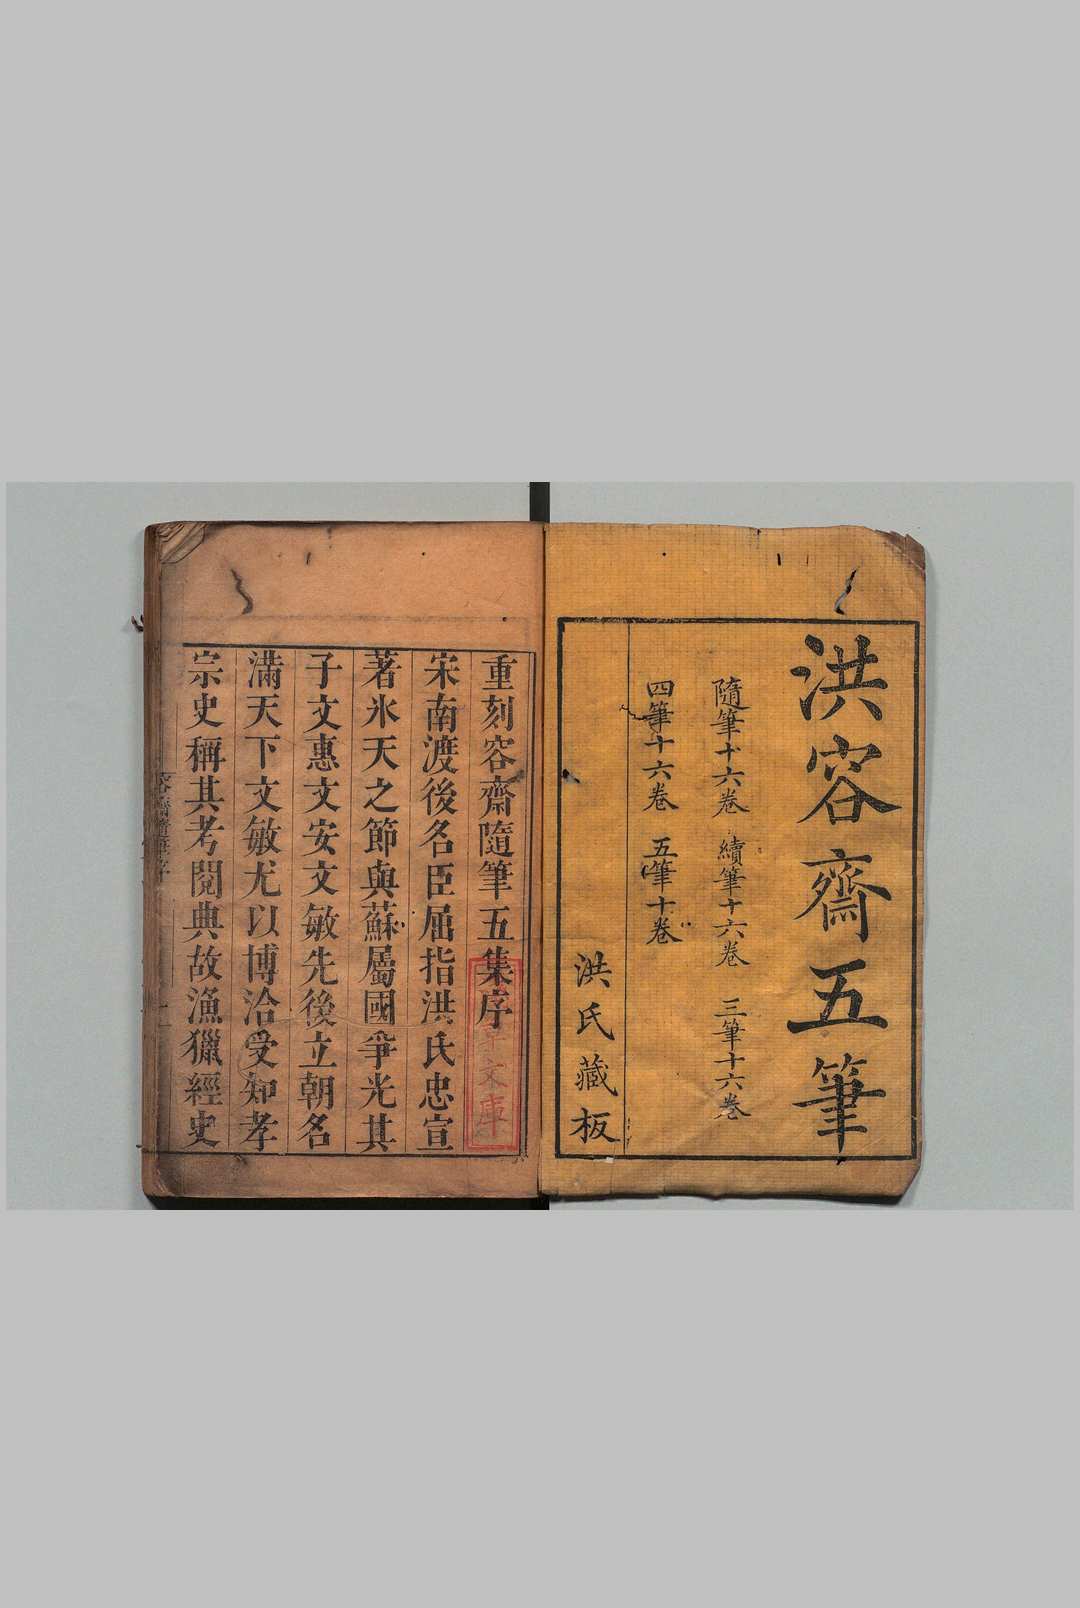 洪容齋五筆
隨筆十六卷 續筆十六卷 三筆十六卷
四筆十六卷 五筆十卷
洪氏藏板
重刻容齋隨筆五集序
宋南渡後名臣屈指洪氏忠宣
著氷天之節與蘇屬國爭光其
子文惠文安文敏先後立朝名
滿天下文敏尤以博洽受知孝
宗史稱其考閱典故漁獵經史
文庫